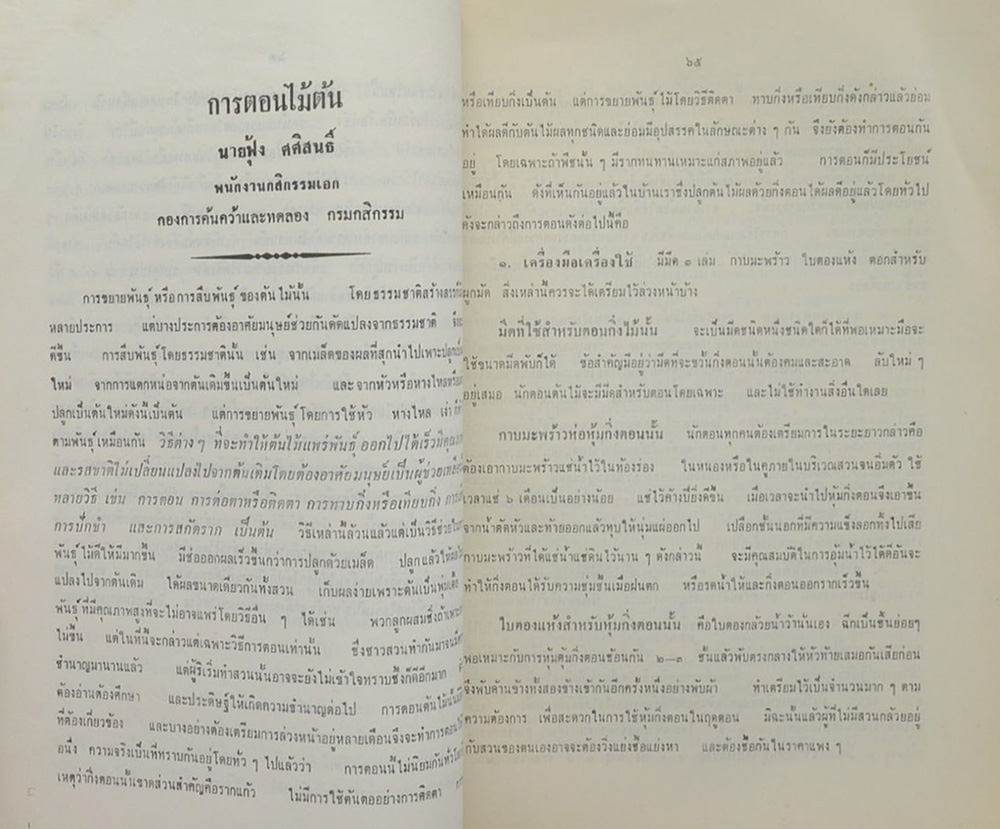 การตอนไม้ต้น
นายฟุ้ง ศศิสนธิ์
พนักงานกสิกรรมเอก
กองการค้นคว้าและทดลอง กรมกสิกรรม
การขยายพันธุ์ หรือการสืบพันธุ์ ของต้นไม้นั้น โดยธรรมชาติสร้างสรรค์
หลายประการ แต่บางประการต้องอาศัยมนุษย์ช่วยกันดัดแปลงจากธรรมชาติ
ดีขึ้น การสืบพันธุ์โดยธรรมชาตินั้น เช่น จากเมล็ดของผลที่สุกนำไปเพาะปลูก
ใหม่ จากการแตกหน่อจากต้นเดิมขึ้นเป็นต้นใหม่ และจากหัวหรือหางไหล
ปลูกเป็นต้นใหม่ดังนี้เป็นต้น แต่การขยายพันธุ์โดยการใช้หัว หางไหล เง่า ก็
ตามพันธุ์เหมือนกัน วิธีต่างๆ ที่จะทำให้ต้นไม้แพร่พันธุ์ ออกไปได้เร็วมี
และรสชาติไม่เปลี่ยนแปลงไปจากต้นเดิมโดยต้องอาศัยมนุษย์เป็นผู้ช่วย
หลายวิธี เช่น การตอน การต่อตาหรือติดตา การทาบกิ่งหรือเทียบกิ่ง
การปักชำ และการสกัดราก เป็นต้น วิธีเหล่านี้ล้วนแล้วแต่เป็นวิธีช่วย
พันธุ์ไม้ดีให้มีมากขึ้น มีช่อออกผลเร็วขึ้นกว่าการปลูกด้วยเมล็ด ปลูกแล้ว
แปลงไปจากต้นเดิม ได้ผลขนาดเดียวกันทั้งสวน เก็บผลง่ายเพราะต้นเป็นพุ่มเตี้ย
พันธุ์ที่มีคุณภาพสูงที่จะไม่อาจแพร่โดยวิธีอื่น ๆ ได้เช่น พวกลูกผสมซึ่งถ้าเพาะ
ไม่ขึ้น แต่ในที่นี้จะกล่าวแต่เฉพาะวิธีการตอนเท่านั้น ซึ่งชาวสวนทำกันมาจน
ชำนาญมานานแล้ว แต่ผู้ริเริ่มทำสวนนั้นอาจจะยังไม่เข้าใจทราบซึ้งก็ดีอีกมาก
ต้องอ่านต้องศึกษา และประดิษฐ์ให้เกิดความชำนาญต่อไป การตอนต้นไม้นั้น
ที่ต้องเกี่ยวข้อง และบางอย่างต้องเตรียมการล่วงหน้าอยู่หลายเดือนจึงจะทำการตอน
อนึ่ง ความจริงเป็นที่ทราบกันอยู่โดยทั่ว ๆ ไปแล้วว่า การตอนนี้ไม่นิยมกัน
เหตุว่ากิ่งตอนนั้นขาดส่วนสำคัญคือรากแก้ว ไม่มีการใช้ต้นตออย่างการติดตา
๖๕
หรือเทียบกิ่งเป็นต้น แต่การขยายพันธุ์ ไม้โดยวิธีติดตา ทาบกิ่งหรือเทียบกิ่งดังกล่าวแล้วย่อม
ทำได้ผลดีกับต้นไม้ผลทุกชนิดและย่อมมีอุปสรรคในลักษณะต่าง ๆ กัน จึงยังต้องทำการตอนกัน
อยู่ โดยเฉพาะถ้าพืชนั้น ๆ มีรากทนทานเหมาะแก่สภาพอยู่แล้ว การตอนก็มีประโยชน์
เหมือนกัน ดังที่เห็นกันอยู่แล้วในบ้านเราซึ่งปลูกต้นไม้ผลด้วยกิ่งตอนได้ผลดีอยู่แล้วโดยทั่วไป
ดังจะกล่าวถึงการตอนดังต่อไปนี้คือ
๑. เครื่องมือเครื่องใช้ มีมีด ๑ เล่ม กาบมะพร้าว ใบตองแห้ง ตอกสำหรับ
ผูกมัด สิ่งเหล่านี้ควรจะได้เตรียมไว้ล่วงหน้าบ้าง
มีดที่ใช้สำหรับตอนกิ่งไม้นั้น จะเป็นมีดชนิดหนึ่งชนิดใดก็ได้ที่พอเหมาะมือจะ
ใช้ขนาดมีดพับก็ได้ ข้อสำคัญมีอยู่ว่ามีดที่จะขวั้นกิ่งตอนนั้นต้องคมและสะอาด ลับใหม่ ๆ
อยู่เสมอ นักตอนต้นไม้จะมีมีดสำหรับตอนโดยเฉพาะ และไม่ใช้ทำงานสิ่งอื่นใดเลย
กาบมะพร้าวห่อหุ้มกิ่งตอนนั้น นักตอนทุกคนต้องเตรียมการในระยะยาวกล่าวคือ
ต้องเอากาบมะพร้าวแช่น้ำไว้ในท้องร่อง ในหนองหรือในคูภายในบริเวณสวนจนอิ่มตัว ใช้
เวลาแช่ ๖ เดือนเป็นอย่างน้อย แช่ไว้ค้างปียิ่งดีขึ้น เมื่อเวลาจะนำไปหุ้มกิ่งตอนจึงเอาขึ้น
จากน้ำตัดหัวและท้ายออกแล้วทุบให้นุ่มแผ่ออกไป เปลือกชั้นนอกที่มีความแข็งลอกทิ้งไปเสีย
กาบมะพร้าวที่ได้แช่น้ำแช่ดินไว้นาน ๆ ดังกล่าวนี้ จะมีคุณสมบัติในการอุ้มน้ำไว้ได้ดีอันจะ
ทำให้กิ่งตอนได้รับความชุ่มชื้นเมื่อฝนตก หรือรดน้ำให้และกิ่งตอนออกรากเร็วขึ้น
ใบตองแห้งสำหรับหุ้มกิ่งตอนนั้น คือใบตองกล้วยน้ำว้านั่นเอง ฉีกเป็นชิ้นย่อยๆ
พอเหมาะกับการหุ้มตุ้มกิ่งตอนซ้อนกัน ๒-๓ ชั้นแล้วพับตรงกลางให้หัวท้ายเสมอกันเสียก่อน
จึงพับด้านข้างทั้งสองข้างเข้ากันอีกครั้งหนึ่งอย่างพับผ้า ทำเตรียมไว้เป็นจำนวนมาก ๆ ตาม
ความต้องการ เพื่อสะดวกในการใช้หุ้มกิ่งตอนในฤดูตอน มิฉะนั้นแล้วผู้ที่ไม่มีสวนกล้วยอยู่
กับสวนของตนเองอาจจะต้องวิ่งแย่งซื้อแย่งหา และต้องซื้อกันในราคาแพง ๆ